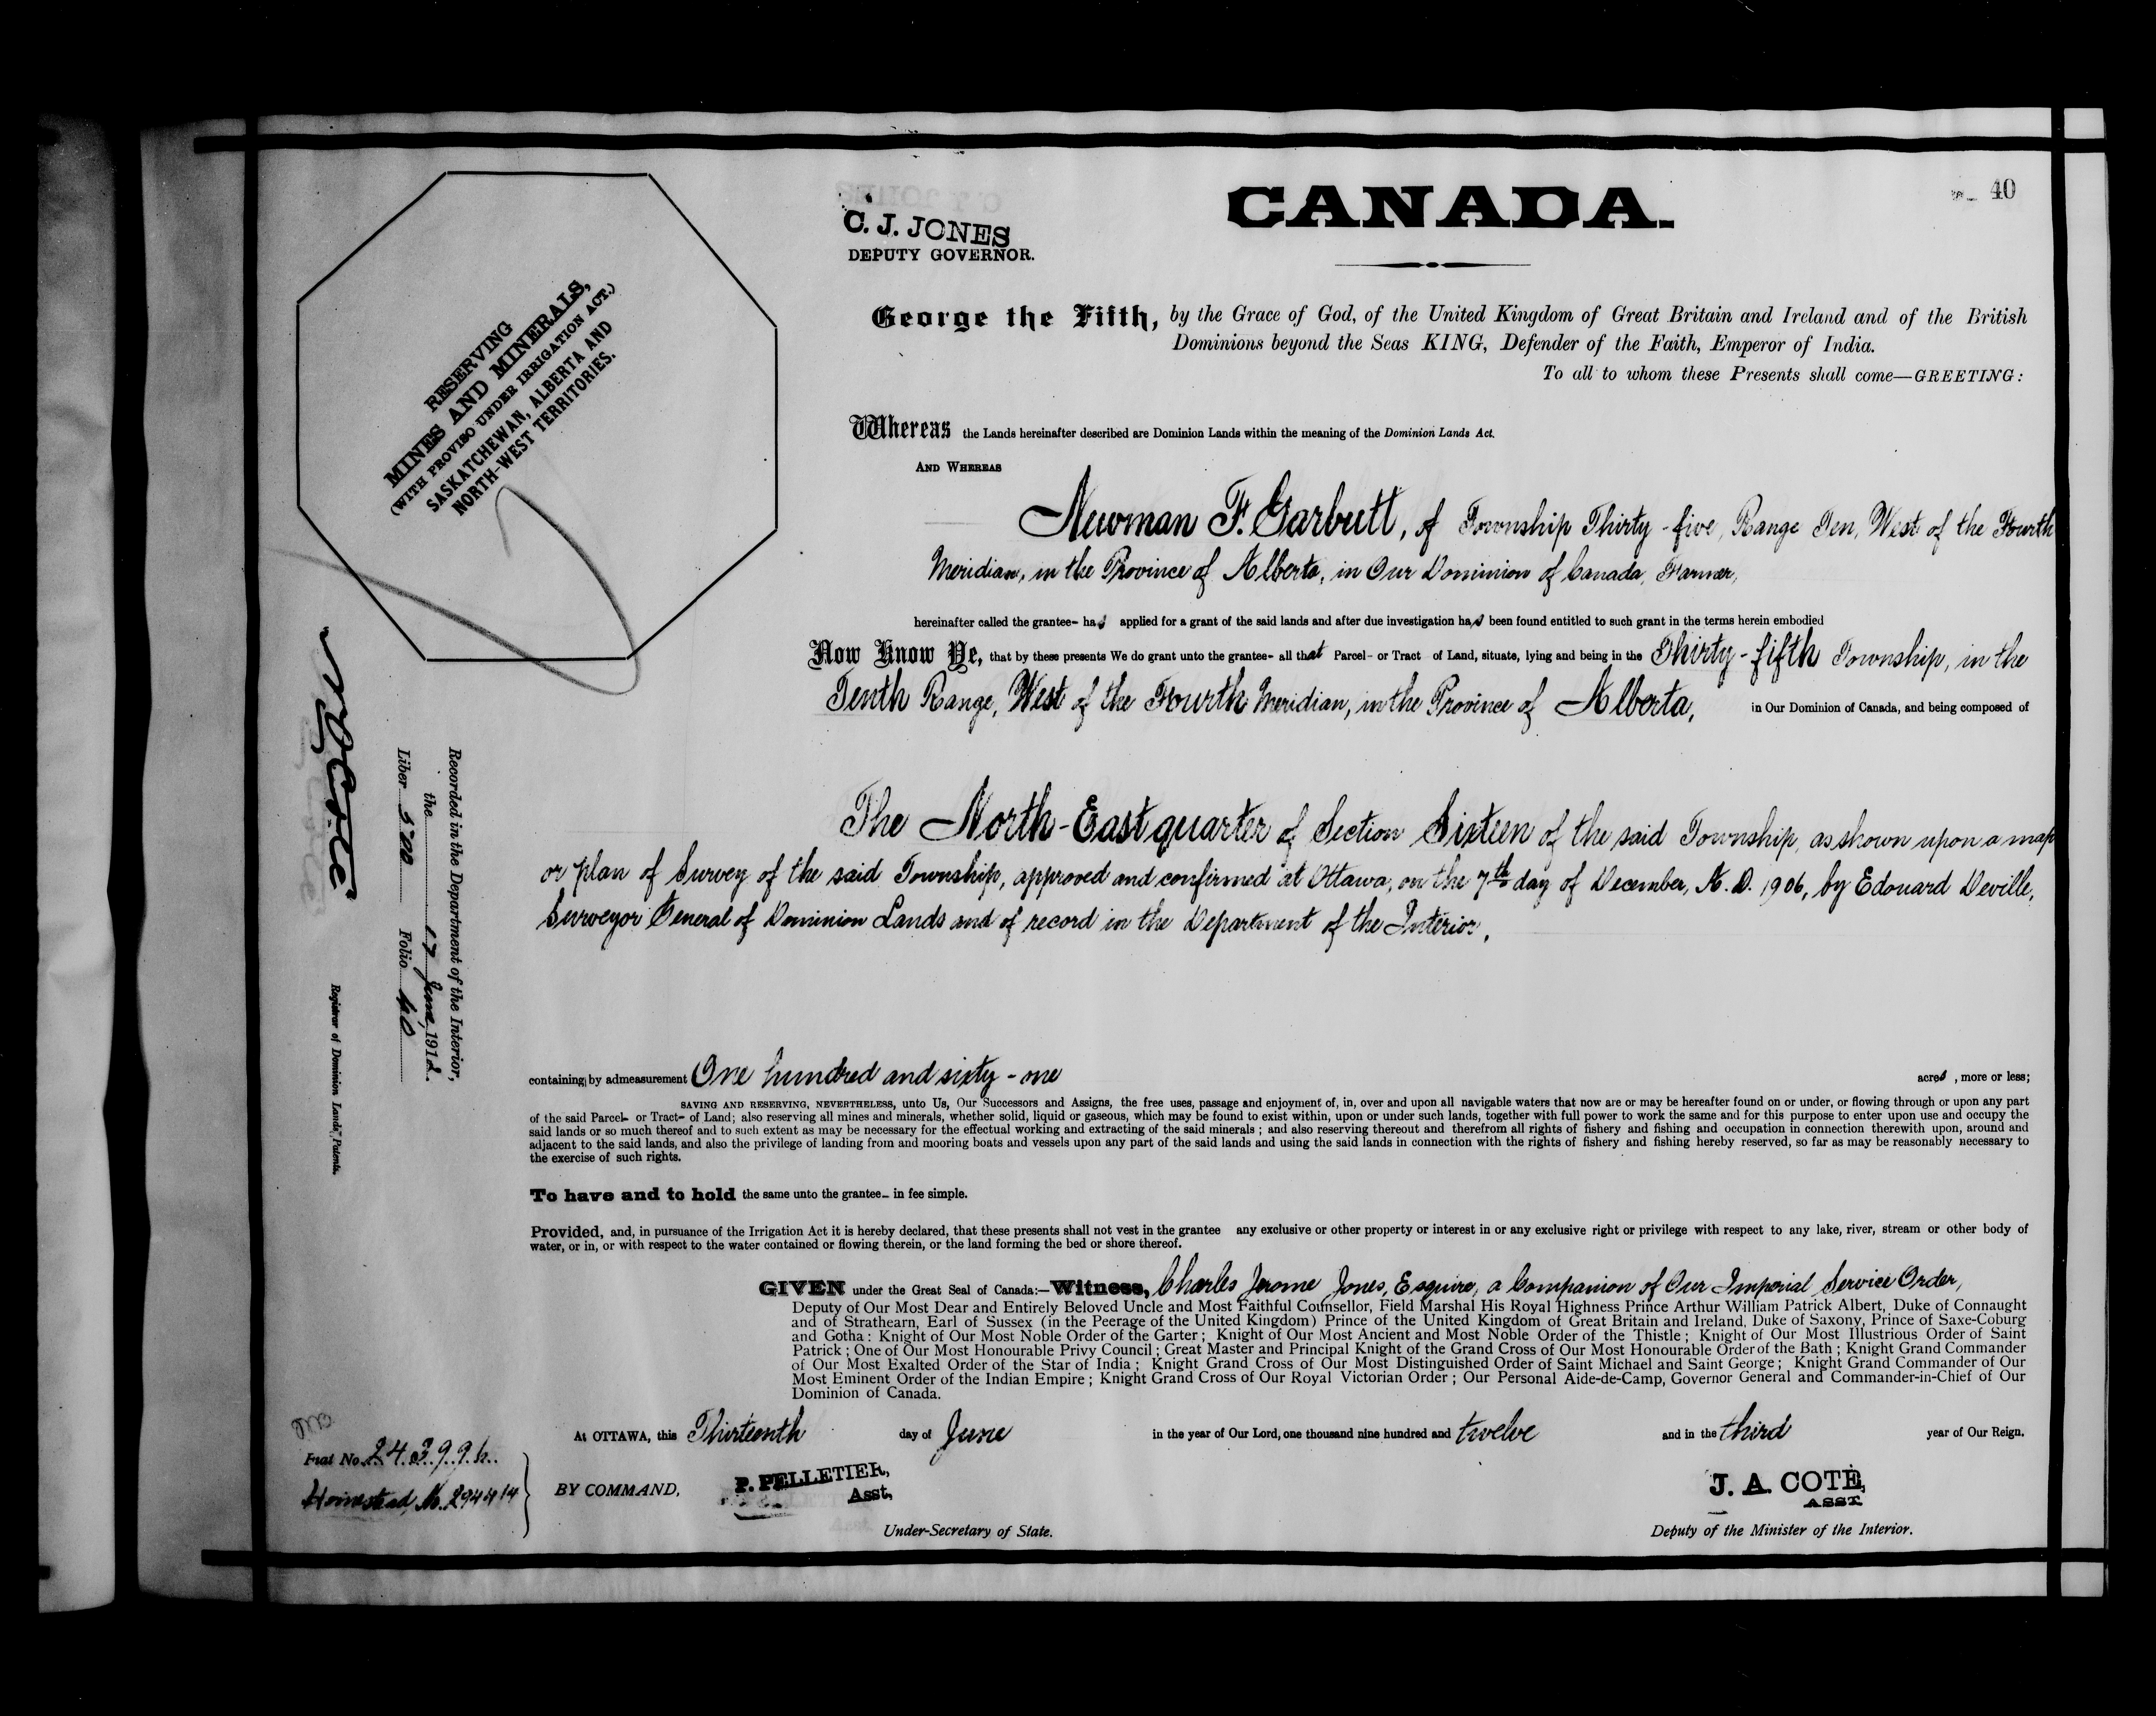 40
CANADA.
C. J. JONES
DEPUTY GOVERNOR.
RESERVING
MINES AND MINERALS,
(WITH PROVISO UNDER IRRIGATION ACT.)
SASKATCHEWAN, ALBERTA AND
NORTH-WEST TERRITORIES.
George the Fifth, by the Grace of God, of the United Kingdom of Great Britain and Ireland and of the British
Dominions beyond the Seas KING, Defender of the Faith, Emperor of India.
To all to whom these Presents shall come—GREETING:
Whereas the Lands hereinafter described are Dominion Lands within the meaning of the Dominion Lands Act.
AND WHEREAS
Newman F. Garbutt, of Township Thirty-five, Range Ten, West of the Fourth
Meridian, in the Province of Alberta, in Our Dominion of Canada, Farmer,
hereinafter called the grantee- has applied for a grant of the said lands and after due investigation has been found entitled to such grant in the terms herein embodied
Now Know Ye, that by these presents We do grant unto the grantee- all that Parcel- or Tract of Land, situate, lying and being in the Thirty-fifth Township, in the
Tenth Range, West of the Fourth Meridian, in the Province of Alberta, in Our Dominion of Canada, and being composed of
The North-East quarter of Section Sixteen of the said Township, as shown upon a map
or plan of Survey of the said Township, approved and confirmed at Ottawa, on the 7th day of December, A. D. 1906, by Edouard Deville,
Surveyor General of Dominion Lands and of record in the Department of the Interior,
Recorded in the Department of the Interior,
the 17 June, 1912.
Liber 500 Folio 40
Registrar of Dominion Lands Patents.
containing by admeasurement One hundred and sixty-one acres, more or less;
SAVING AND RESERVING, NEVERTHELESS, unto Us, Our Successors and Assigns, the free uses, passage and enjoyment of, in, over and upon all navigable waters that now are or may be hereafter found on or under, or flowing through or upon any part
of the said Parcel- or Tract- of Land; also reserving all mines and minerals, whether solid, liquid or gaseous, which may be found to exist within, upon or under such lands, together with full power to work the same and for this purpose to enter upon use and occupy the
said lands or so much thereof and to such extent as may be necessary for the effectual working and extracting of the said minerals; and also reserving thereout and therefrom all rights of fishery and fishing and occupation in connection therewith upon, around and
adjacent to the said lands, and also the privilege of landing from and mooring boats and vessels upon any part of the said lands and using the said lands in connection with the rights of fishery and fishing hereby reserved, so far as may be reasonably necessary to
the exercise of such rights.
To have and to hold the same unto the grantee- in fee simple.
Provided, and, in pursuance of the Irrigation Act it is hereby declared, that these presents shall not vest in the grantee any exclusive or other property or interest in or any exclusive right or privilege with respect to any lake, river, stream or other body of
water, or in, or with respect to the water contained or flowing therein, or the land forming the bed or shore thereof.
GIVEN under the Great Seal of Canada:—Witness, Charles Jerome Jones, Esquire, a Companion of Our Imperial Service Order,
Deputy of Our Most Dear and Entirely Beloved Uncle and Most Faithful Counsellor, Field Marshal His Royal Highness Prince Arthur William Patrick Albert, Duke of Connaught
and of Strathearn, Earl of Sussex (in the Peerage of the United Kingdom) Prince of the United Kingdom of Great Britain and Ireland, Duke of Saxony, Prince of Saxe-Coburg
and Gotha: Knight of Our Most Noble Order of the Garter; Knight of Our Most Ancient and Most Noble Order of the Thistle; Knight of Our Most Illustrious Order of Saint
Patrick; One of Our Most Honourable Privy Council; Great Master and Principal Knight of the Grand Cross of Our Most Honourable Order of the Bath; Knight Grand Commander
of Our Most Exalted Order of the Star of India; Knight Grand Cross of Our Most Distinguished Order of Saint Michael and Saint George; Knight Grand Commander of Our
Most Eminent Order of the Indian Empire; Knight Grand Cross of Our Royal Victorian Order; Our Personal Aide-de-Camp, Governor General and Commander-in-Chief of Our
Dominion of Canada.
At OTTAWA, this Thirteenth day of June in the year of Our Lord, one thousand nine hundred and twelve and in the third year of Our Reign.
Fiat No.
Homestead, No. 294414
BY COMMAND,
P. PELLETIER,
Asst,
Under-Secretary of State.
J. A. COTE,
ASST.
Deputy of the Minister of the Interior.